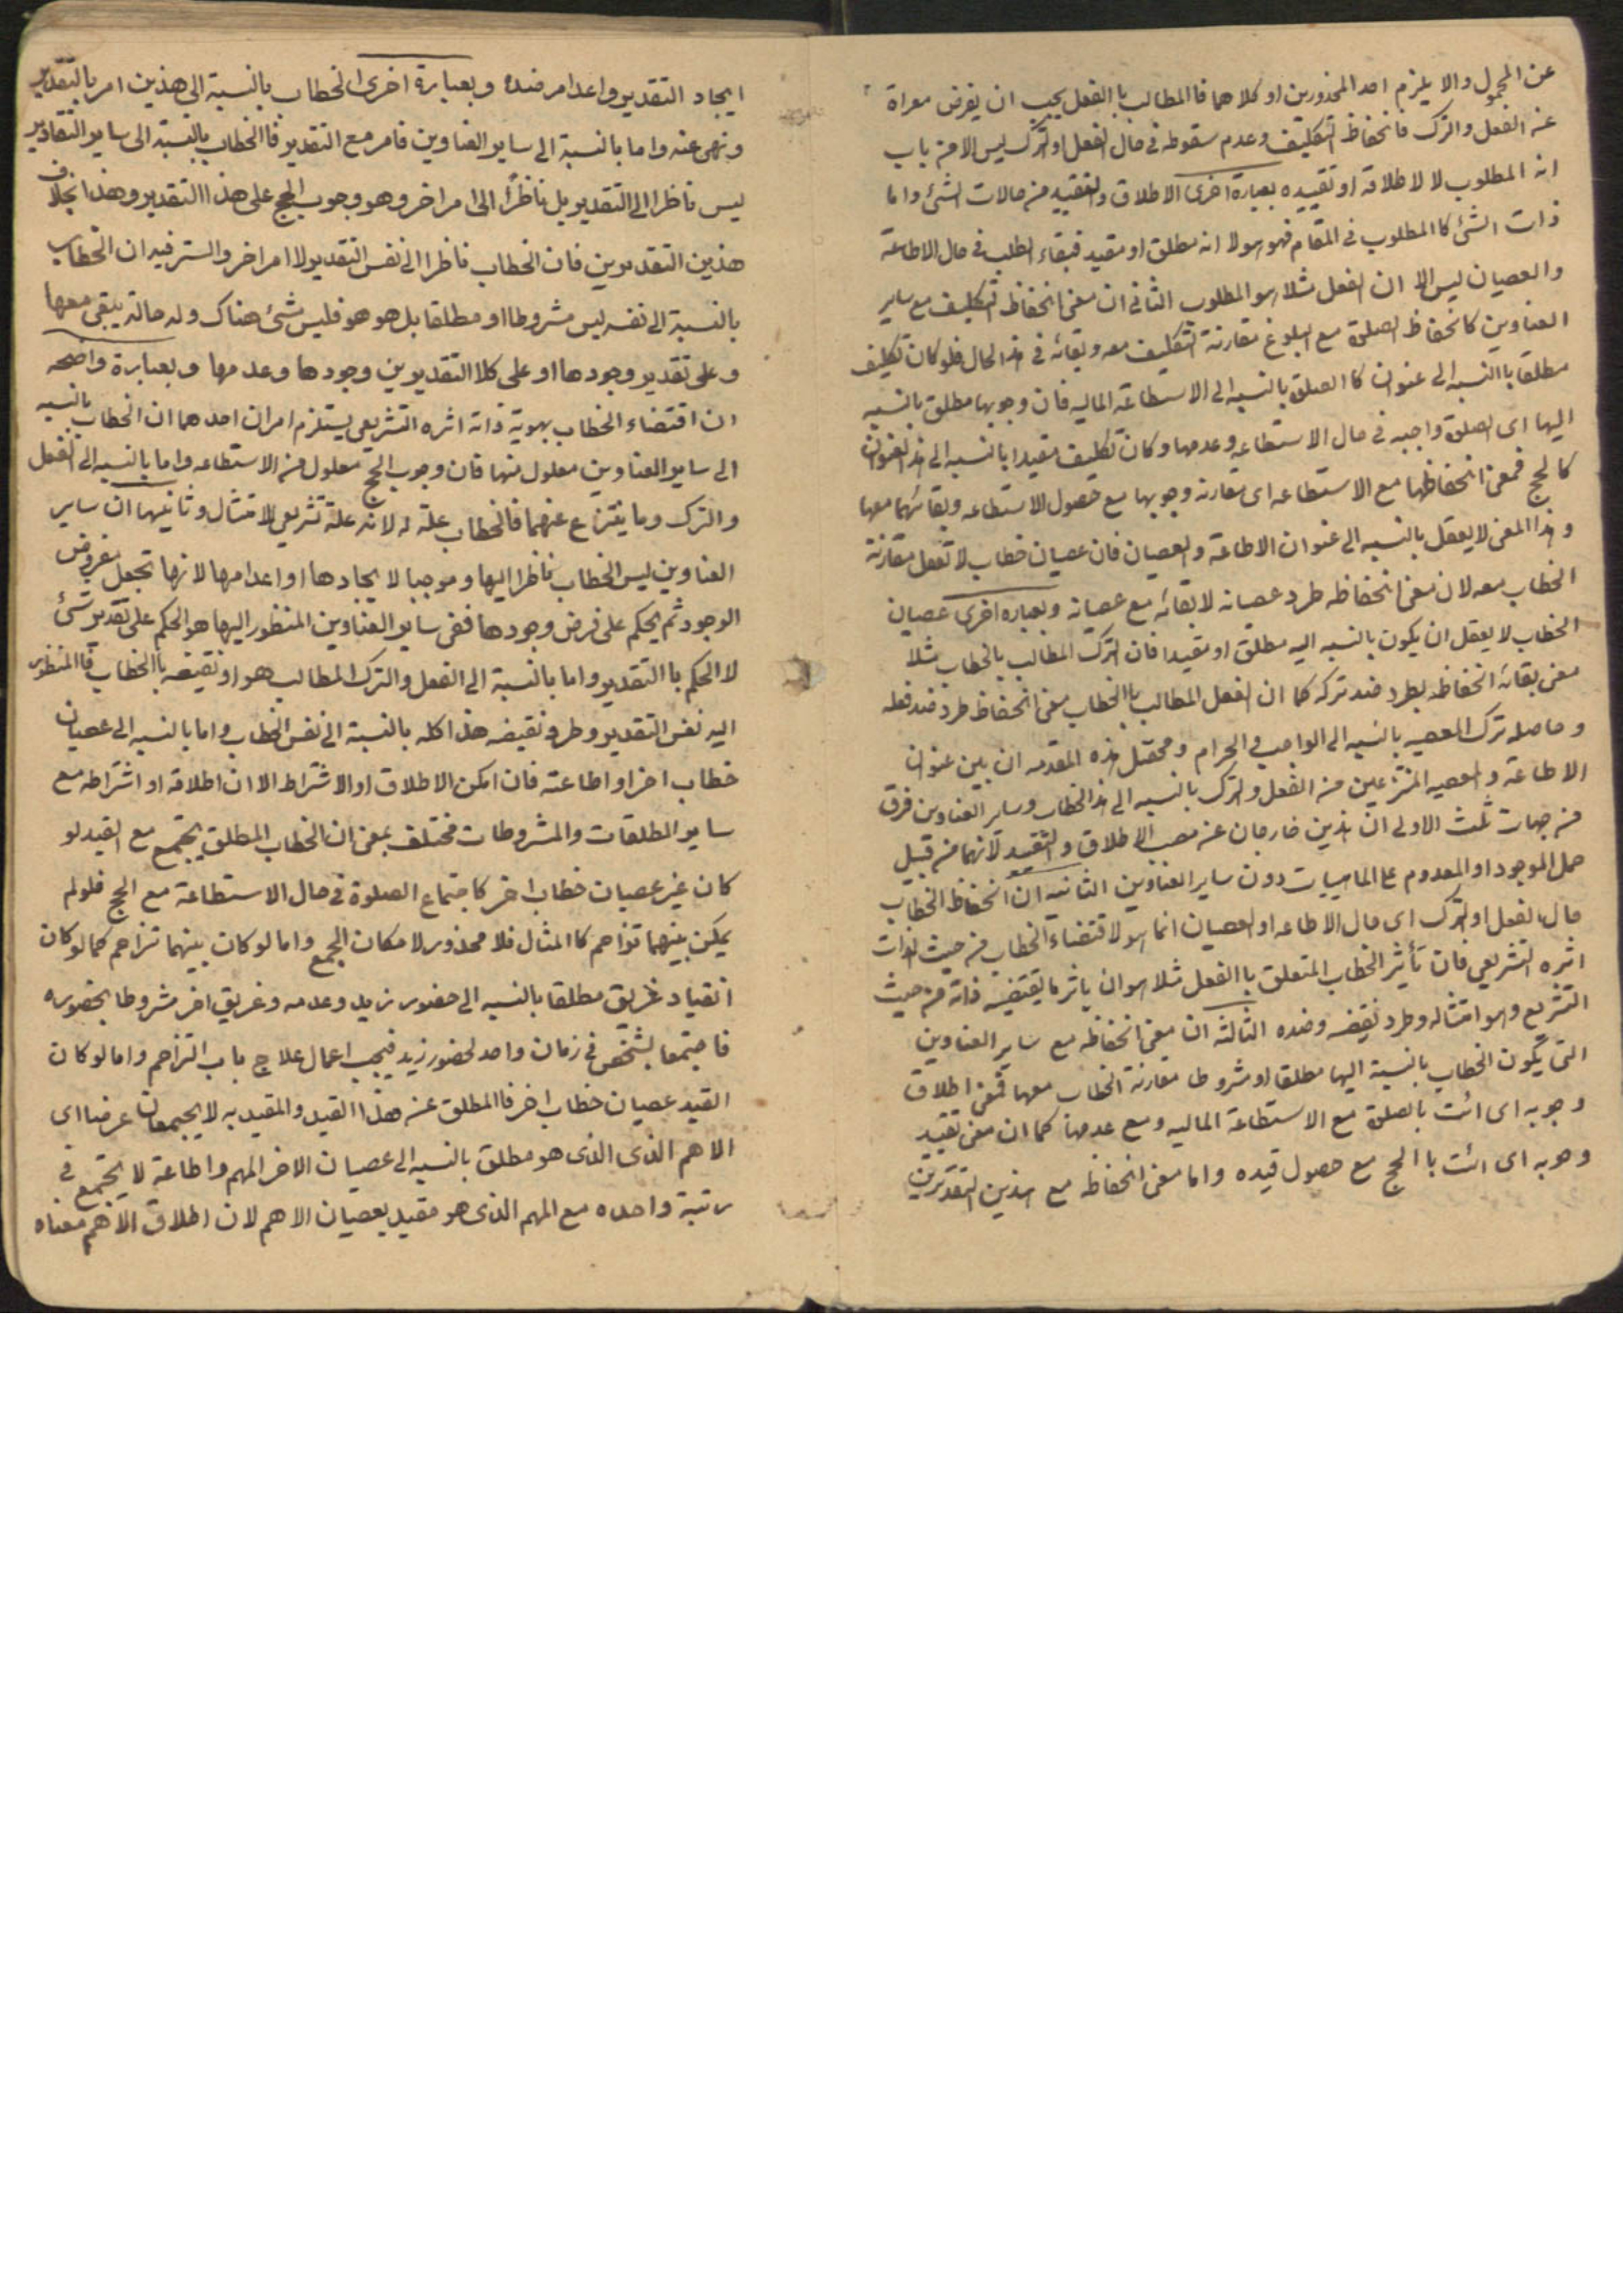 عن المحمول والا يلزم احد المحذورين او كلاهما فاالمطالب باالفعل يجب ان يفرض معراة
عنه الفعل والترك فانحفاظ التكليف وعدم سقوطه في حال الفعل او الترك ليس الا من باب
انه المطلوب لا لاطلاقه او تقييده بعبارة اخرى الاطلاق والتقييد من حالات الشئ واما
ذات الشئ كاالمطلوب في المقام فهو هو لا انه مطلق او مقيد فبقاء الطلب في حال الاطاعة
والعصيان ليس الا ان الفعل مثلا هو المطلوب الثاني ان معنى انحفاظ التكليف مع ساير
العناوين كانحفاظ الصلوة مع البلوغ مقارنة التكليف معه وبقائه في هذا الحال فلو كان تكليف
مطلقا باالنسبه الى عنوان كاالصلوة بالنسبه الى الاستطاعة الماليه فان وجوبها مطلق بالنسبه
اليها اى الصلوة واجبه في حال الاستطاعه وعدمها وكان تكليف مقيدا بالنسبه الى هذا العنوان
كالحج فمعنى انحفاظها مع الاستطاعه اى مقارنة وجوبها مع حصول الاستطاعه وبقائهما معها
وهذا المعنى لا يعقل بالنسبه الى عنوان الاطاعة والعصيان فان عصيان خطاب لا تعقل مقارنة
الخطاب معه لان معنى انحفاظه طرد عصيانه لا بقائه مع عصيانه وبعباره اخرى عصيان
الخطاب لا يعقل ان يكون بالنسبه اليه مطلق او مقيدا فان الترك المطالب بالخطاب مثلا
معنى بقائه انحفاظه بطرد ضد تركه كما ان الفعل المطالب باالخطاب معنى انحفاظه طرد ضد فعله
وحاصله ترك المعصيه بالنسبه الى الواجب والحرام ومحصل هذه المقدمه ان بين عنوان
الاطاعة والمعصيه المنتزعين من الفعل والترك بالنسبه الى هذا الخطاب وساير العناوين فرق
من جهات ثلث الاولى ان هذين خارجان عن مصب الاطلاق والتقييد لانهما من قبيل
حمل الموجود او المعدوم على الماهيات دون ساير العناوين الثانيه ان انحفاظ الخطاب
حال الفعل او الترك اى حال الاطاعه او العصيان انما هو لاقتضاء الخطاب من حيث الذات
اثره التشريعي فان تأثير الخطاب المتعلق باالفعل مثلا هو ان ياثر ما يقتضيه ذاته من حيث
التشريع وهو امتثاله وطرد نقيضه وضده الثالثه ان معنى انحفاظه مع ساير العناوين
التى يكون الخطاب بالنسبة اليها مطلقا او مشروطا مقارنة الخطاب معهما فمعنى اطلاق
وجوبه اى ائت بالصلوة مع الاستطاعة الماليه ومع عدمها كما ان معنى تقييد
وجوبه اى ائت باالحج مع حصول قيده واما معنى انحفاظه مع هذين التقديرين
ايجاد التقدير واعدامه ضده وبعبارة اخرى الخطاب بالنسبة الى هذين امر بالتقدير
ونهى عنه واما بالنسبة الى ساير العناوين فامر مع التقدير فاالخطاب بالنسبة الى ساير التقادير
ليس ناظرا الى التقدير بل ناظرًا الى امر اخر وهو وجوب الحج على هذا التقدير وهذا بخلاف
هذين التقديرين فان الخطاب ناظرا الى نفس التقدير لا امر اخر والسر فيه ان الخطاب
بالنسبة الى نفسه ليس مشروطا او مطلقا بل هو هو فليس شئ هناك وله حالة يبقى معها
وعلى تقدير وجودها او على كلا التقديرين وجودها وعدمها وبعبارة واضحه
ان اقتضاء الخطاب بهوية ذاته اثره التشريعي يستلزم امران احدهما ان الخطاب بالنسبه
الى ساير العناوين معلول منها فان وجوب الحج معلول من الاستطاعه واما بالنسبه الى الفعل
والترك وما ينتزاع عنهما فالخطاب علة له لانه علة تشريعى للامتثال وثانيهما ان ساير
العناوين ليس الخطاب ناظرا اليها وموجبا لايجادها او اعدامها لانها تجعل مفروض
الوجود ثم يحكم على فرض وجودها ففى ساير العناوين المنظور اليها هو الحكم على تقدير شئ
لا الحكم باالتقدير واما بالنسبة الى الفعل والترك المطالب هو او نقيضه باالخطاب فاالمنظور
اليه نفس التقدير وطرد نقيضه هذا كله بالنسبة الى نفس الخطاب واما بالنسبه الى عصيان
خطاب اخر او اطاعته فان امكن الاطلاق او الاشتراط الا ان اطلاقه او اشتراطه مع
ساير المطلقات والمشروطات مختلف بمعنى ان الخطاب المطلق يجتمع مع القيد لو
كان غير عصيان خطاب اخر كاجتماع الصلوة في حال الاستطاعة مع الحج فلو لم
يمكن بينهما تزاحم كاالمثال فلا محذور لامكان الجمع واما لو كان بينهما تزاحم كما لو كان
انقياد غريق مطلقا بالنسبه الى حضور زيد وعدمه وغريق اخر مشروطا بحضوره
فاجتمعا لشخص في زمان واحد لحضور زيد فيجب اعمال علاج باب التزاحم واما لو كان
القيد عصيان خطاب اخر فاالمطلق عنه هذا القيد والمقيد به لا يجتمعان عرضا اى
الاهم الذى الذى هو مطلق بالنسبه الى عصيان الاخر المهم واطاعة لا يجتمع في
رتبة واحده مع المهم الذى هو مقيد بعصيان الاهم لان اطلاق الاهم معناه